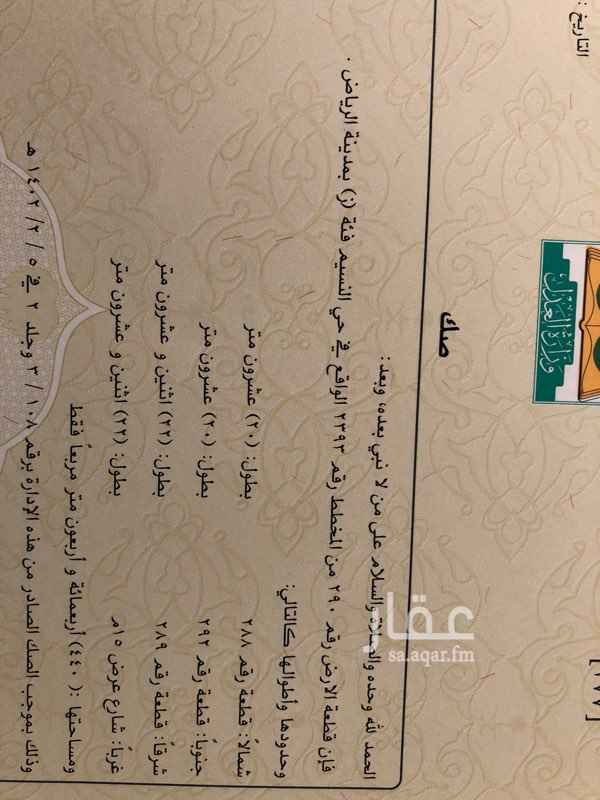 التاريخ :
[١٧٧]
وزارة العدل
صك
الحمد لله وحده والصلاة والسلام على من لا نبي بعده، وبعد:
فإن قطعة الارض رقم ٢٩٠ من المخطط رقم ٢٣٩٣ الواقع في حي النسيم فئة (ز) بمدينة الرياض .
وحدودها وأطوالها كالتالي:
شمالاً: قطعة رقم ٢٨٨ بطول: (٢٠) عشرون متر
جنوباً: قطعة رقم ٢٩٢ بطول: (٢٠) عشرون متر
شرقاً: قطعة رقم ٢٨٩ بطول: (٢٢) اثنين و عشرون متر
غرباً: شارع عرض ١٥م بطول: (٢٢) اثنين و عشرون متر
ومساحتها :( ٤٤٠) أربعمائة و أربعون متر مربعاً فقط
وذلك بموجب الصك الصادر من هذه الإدارة برقم ١٠٨ / ٣ وجلد ٢ في ٥ / ٢ / ١٤٠٢ هـ
عقار
sa.aqar.fm